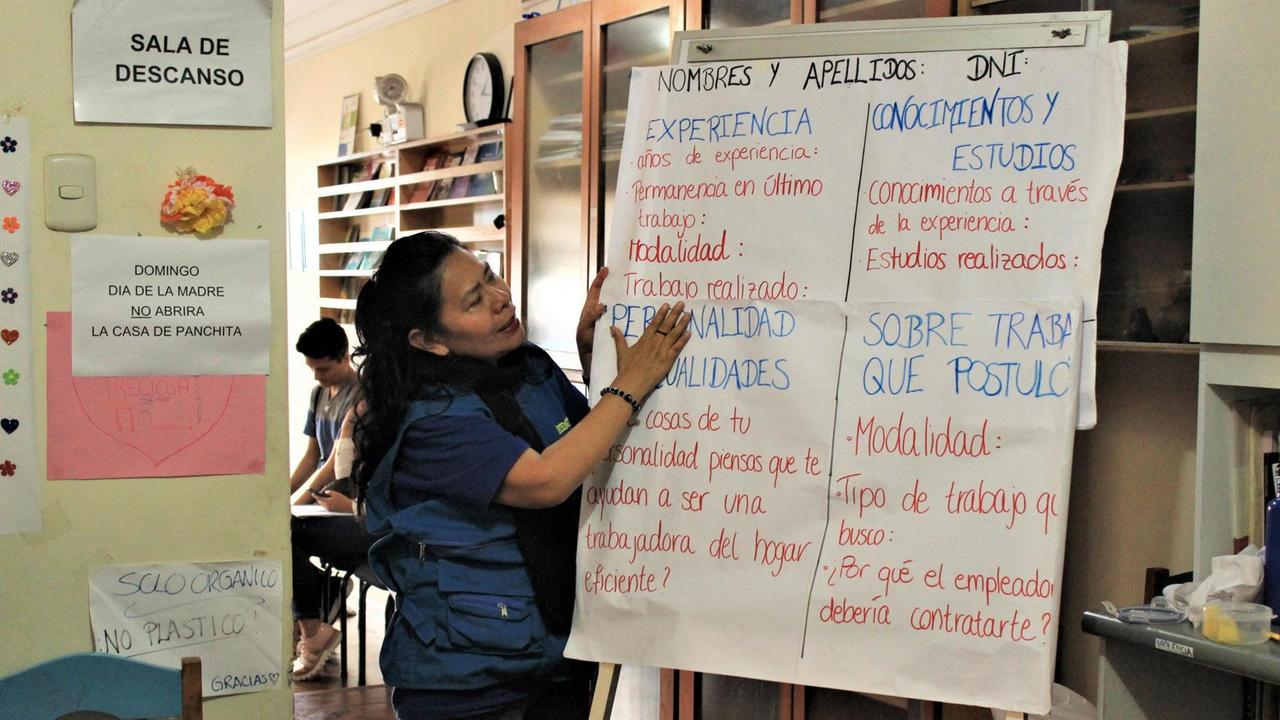 SALA DE
DESCANSO
DOMINGO
DIA DE LA MADRE
NO ABRIRA
LA CASA DE PANCHITA
PRECIOSA
SOLO ORGANICO
¡NO PLASTICO!
GRACIAS
NOMBRES Y APELLIDOS: DNI:
EXPERIENCIA
· años de experiencia:
· Permanencia en último
trabajo:
· Modalidad:
Trabajo realizado:
CONOCIMIENTOS Y
ESTUDIOS
· Conocimientos a través
de la experiencia:
· Estudios realizados:
PE NALIDAD
UALIDADES
cosas de tu
rsonalidad piensas que te
ayudan a ser una
trabajadora del hogar
eficiente?
SOBRE TRABA
QUE POSTULO
· Modalidad:
· Tipo de trabajo qu
busco:
· ¿Por qué el empleador
debería contratarte?
VIOLENCIA